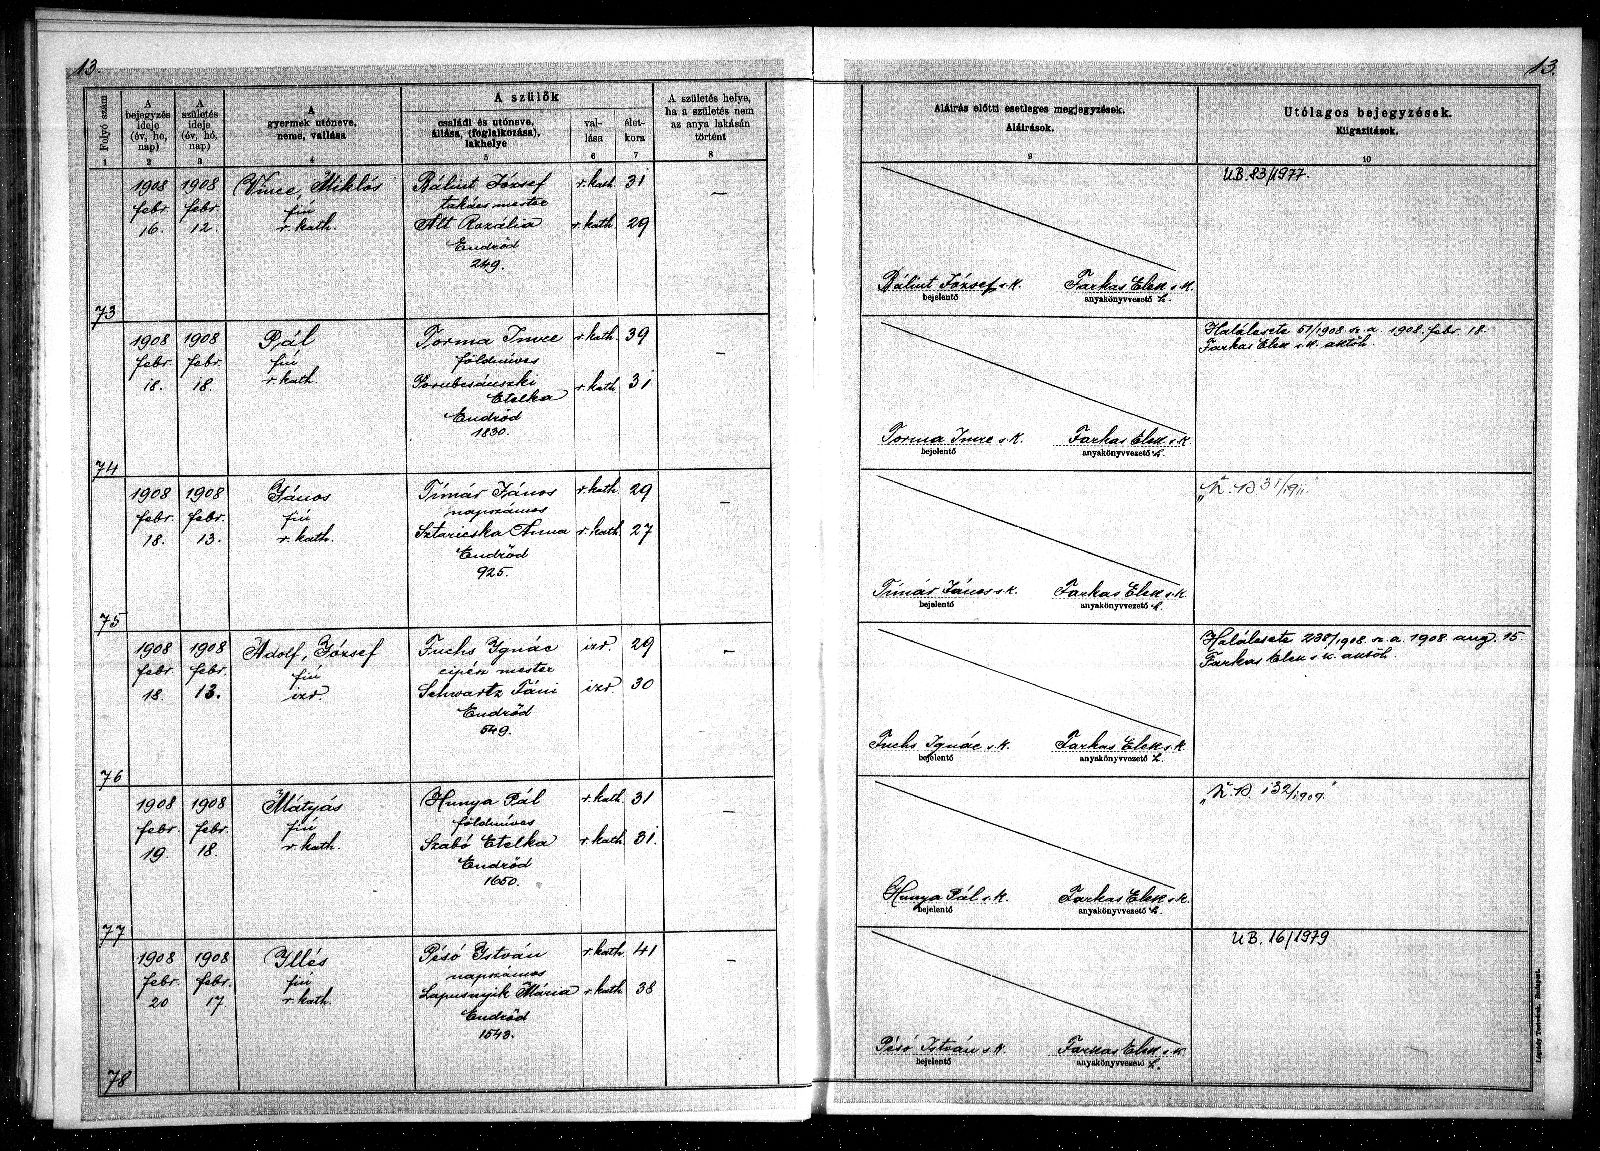 13.
13.
Folyó szám
A bejegyzés ideje (év, hó, nap)
A születés ideje (év, hó, nap)
A gyermek utóneve, neme, vallása
A szülők
családi és utóneve, állása, (foglalkozása), lakhelye
vallása
életkora
A születés helye, ha a születés nem az anya lakásán történt
Aláírás előtti esetleges megjegyzések.
Aláírások.
Utólagos bejegyzések.
Kiigazítások.
1 2 3 4 5 6 7 8 9 10
73
1908 febr. 16.
1908 febr. 12.
Vince, Miklós
fiú
r. kath.
Bálint József r. kath. 31
takács mester
Alt Rozália r. kath. 29
Endrőd
249.
—
Bálint József s. k.
bejelentő
Farkas Elek s. k.
anyakönyvvezető h.
UB. 83/1977.
74
1908 febr. 18.
1908 febr. 18.
Pál
fiú
r. kath.
Torma Imre r. kath. 39
földmíves
Etelka r. kath. 31
Endrőd
1830.
—
Torma Imre s. k.
bejelentő
Farkas Elek s. k.
anyakönyvvezető h.
Halálesete 51/1908 sz. a. 1908. febr. 18.
Farkas Elek s. k. aktöh.
75
1908 febr. 18.
1908 febr. 13.
János
fiú
r. kath.
Tímár János r. kath. 29
napszámos
Sztaricska Anna r. kath. 27
Endrőd
925.
—
Tímár János s. k.
bejelentő
Farkas Elek s. k.
anyakönyvvezető h.
31/1911
76
1908 febr. 18.
1908 febr. 13.
Adolf, József
fiú
izr.
Fuchs Ignác izr. 29
cipész mester
Schwartz Fáni izr. 30
Endrőd
549.
—
Fuchs Ignác s. k.
bejelentő
Farkas Elek s. k.
anyakönyvvezető h.
Halálesete 238/1908 sz. a. 1908 aug. 15
Farkas Elek s. k. aktöh.
77
1908 febr. 19.
1908 febr. 18.
Mátyás
fiú
r. kath.
Hunya Pál r. kath. 31
földmíves
Szabó Etelka r. kath. 31.
Endrőd
1650.
—
Hunya Pál s. k.
bejelentő
Farkas Elek s. k.
anyakönyvvezető h.
132/1909
78
1908 febr. 20
1908 febr. 17
Illés
fiú
r. kath.
Pésó István r. kath. 41
napszámos
Lapusnyik Mária r. kath. 38
Endrőd
1543.
—
Pésó István s. k.
bejelentő
Farkas Elek s. k.
anyakönyvvezető h.
UB. 16/1979
Budapest.